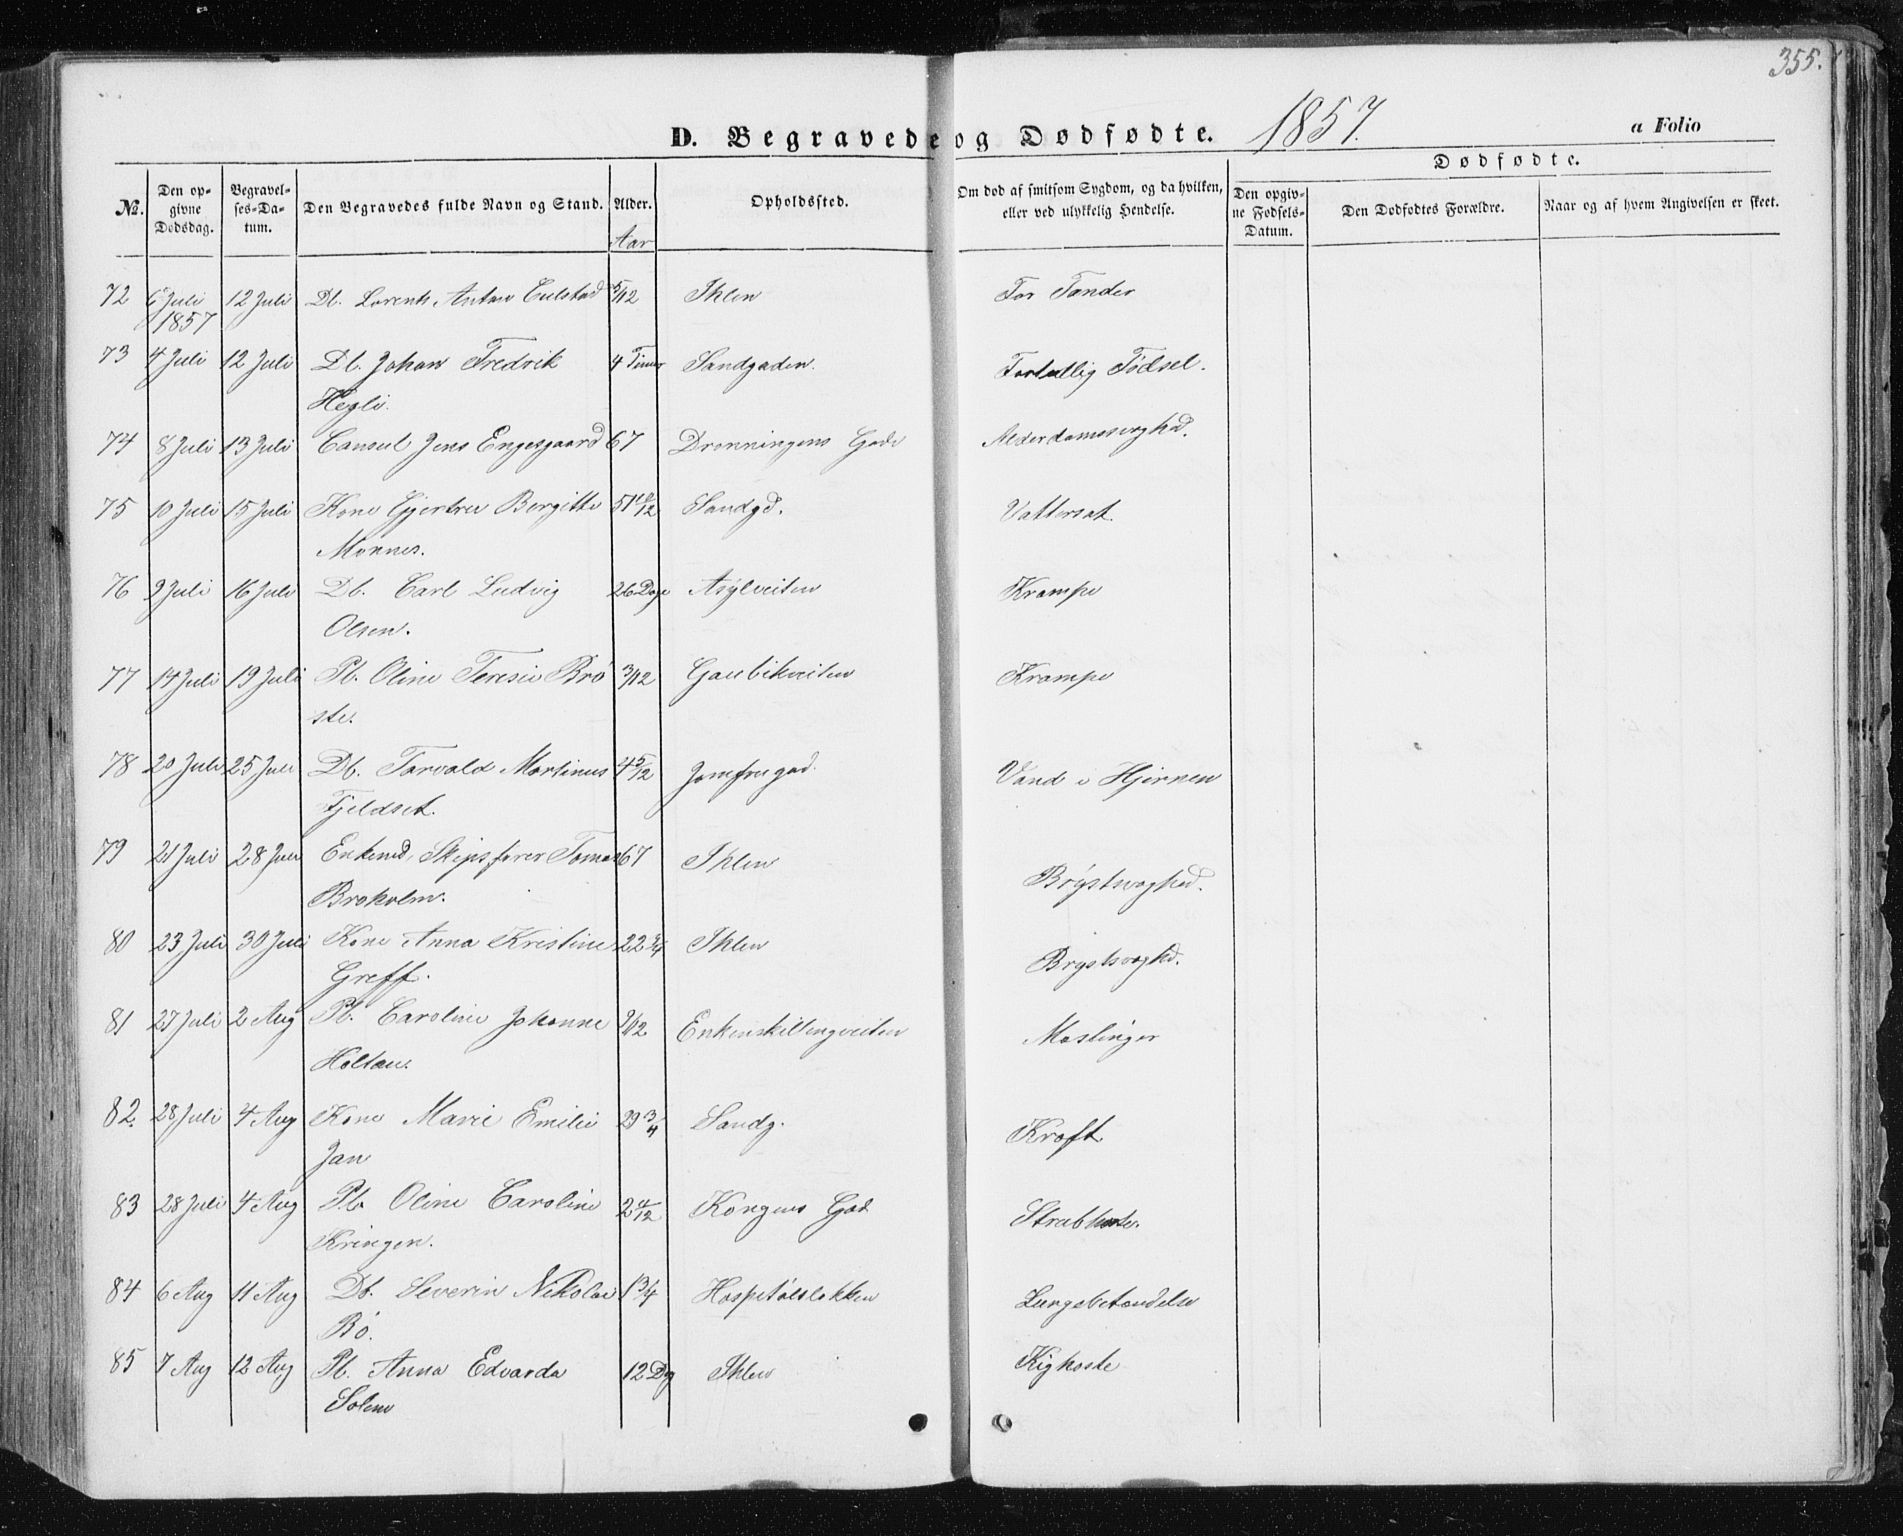 355.
D. Begravede og Dødfødte. 1857.
a Folio
Dødfødte.
№.
Den op-
givne
Dødsdag.
Begravel-
ses-Da-
tum.
Den Begravedes fulde Navn og Stand.
Alder.
Aar
Opholdssted.
Om død af smitsom Sygdom, og da hvilken,
eller ved ulykkelig Hendelse.
Den opgiv-
ne Fødsels-
Datum.
Den Dødfødtes Forældre.
Naar og af hvem Angivelsen er skeet.
72 6 Juli 12 Juli Db. Lorents Anton Culstad 5/12 Ihlen For Tænder
1857
73 4 Juli 12 Juli Db. Johan Fredrik 4 Timer Sandgaden. Fortidlig Fødsel.
Hegli.
74 8 Juli 13 Juli Consul Jens Engesgaard 67 Dronningens Gade Alderdomssvaghed.
75 10 Juli 15 Juli Kone Gjertru Bergitte 51 10/12 Sandgd. Vattersot.
Monnes.
76 9 Juli 16 Juli Db. Carl Ludvig 26 Dage Asylveiten Krampe
Olsen.
77 14 Juli 19 Juli Pb. Oline Teresie Brø 3/12 Gaubikveiten Krampe
ste.
78 20 Juli 25 Juli Db. Torvald Martinus 4 5/12 Jomfrugad. Vand i Hjernen
Fjeldset.
79 21 Juli 28 Juli Enkemd. Skipsfører Tomas 67 Ihlen Brystsvaghed.
Broholm.
80 23 Juli 30 Juli Kone Anna Kristine 22 3/4 Ihlen Brystsvaghd.
Greff.
81 27 Juli 2 Aug Pb. Caroline Johanne 9/12 Enkenskillingveiten Meslinger
Holtan.
82. 28 Juli 4 Aug Kone Marie Emilie 29 3/4 Sandg. Kræft
Jan
83 28 Juli 4 Aug Pb. Oline Caroline 2 4/12 Kongens Gad Strubhoste.
Kringen.
84 6 Aug 11 Aug Db. Severin Nikolai 1 3/4 Hospitalsløkken Lungebetændelse
Bø.
85 7 Aug 12 Aug Pb. Anna Edvarda 12 Dg Ihlen Kighoste
Solem